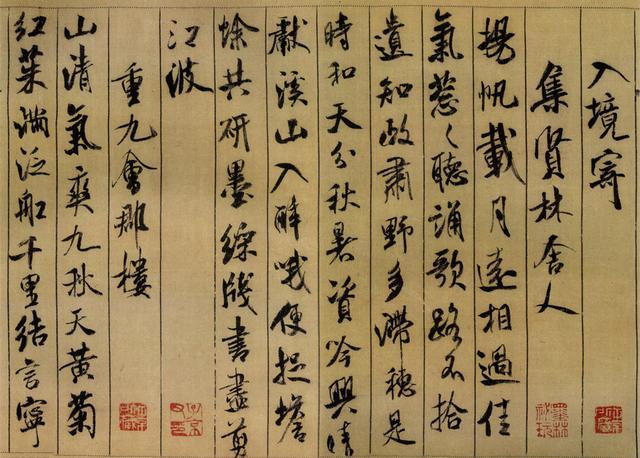 入境寄
集賢林舍人
揚帆載月遠相過佳
氣蔥〻聽誦歌路不拾
遺知政肅野多滯穗是
時和天分秋暑資吟興晴
獻溪山入醉哦便捉蟾
蜍共研墨綵牋書盡剪
江波
重九會郡樓
山清氣爽九秋天黃菊
紅茱滿泛船千里結言寧
墨林祕玩
子京父印